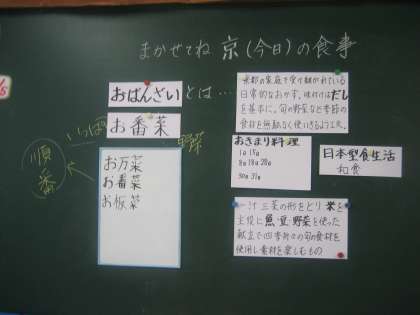 まかせてね 京(今日)の食事
おばんざいとは…
お番菜
いっぱい
野菜
順番
お万菜
お番菜
お板菜
京都の家庭で受け継がれている
日常的なおかず。味付けはだし
を基本に、旬の野菜など季節の
食材を無駄なく使いきるよう工夫。
おきまり料理
1日 15日
8日 18日 28日
30日 31日
日本型食生活
和食
一汁三菜の形をとり 米を
主役に魚 豆 野菜を使った
献立で四季折々の旬の食材を
使用し素材を楽しむもの